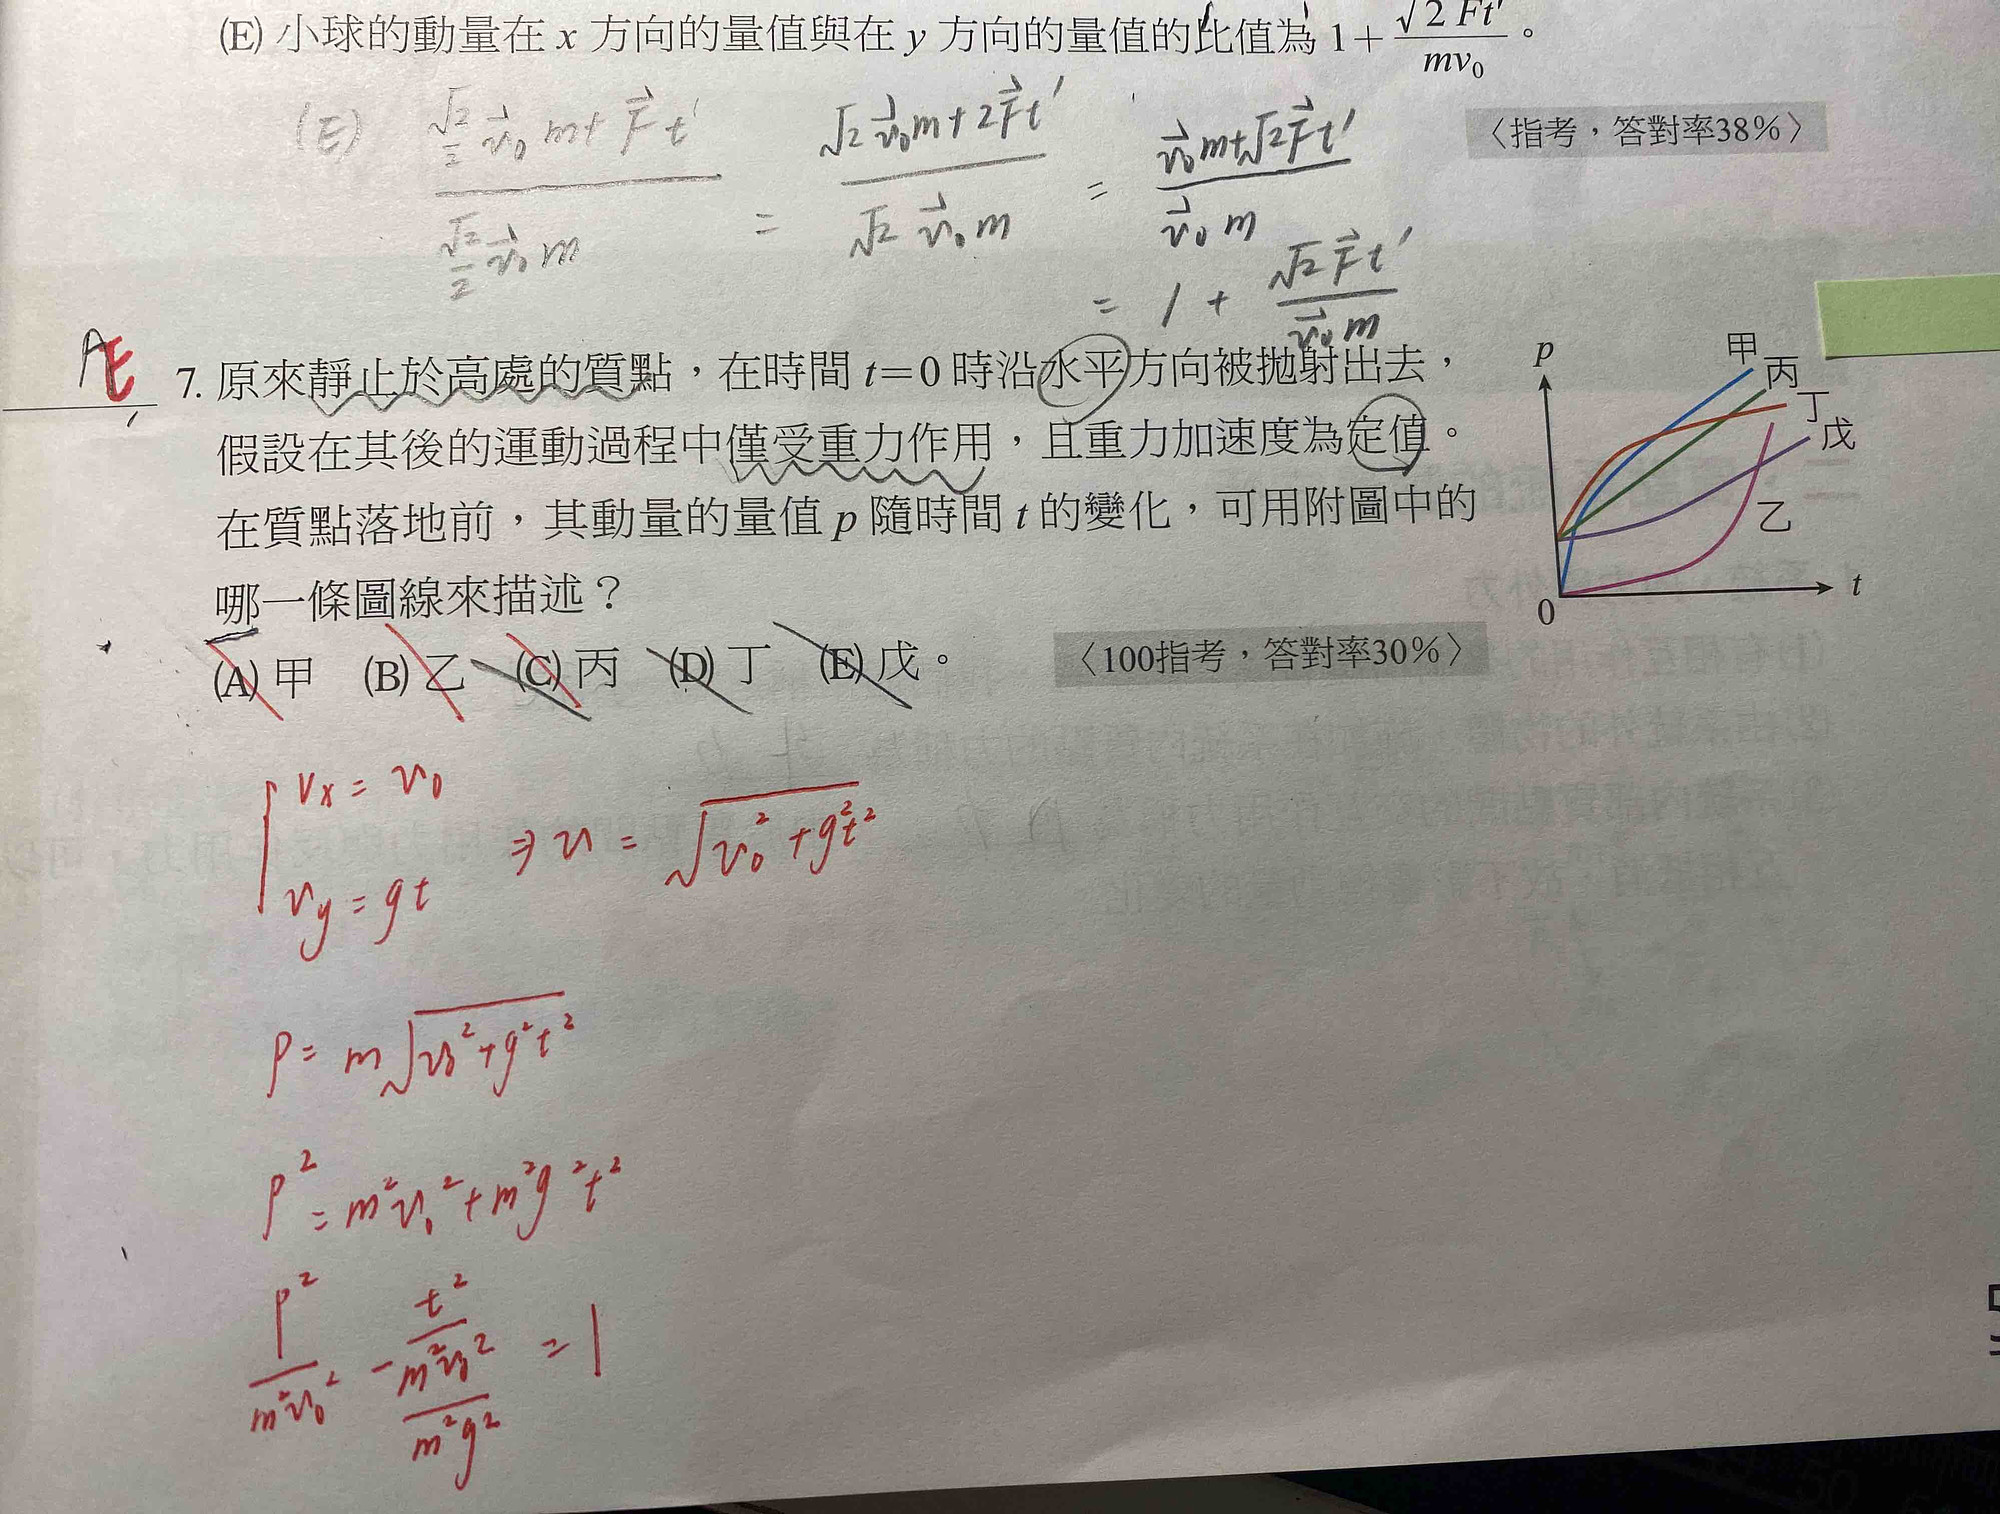 (E) 小球的動量在 x 方向的量值與在 y 方向的量值的比值為 1+√2 Ft'/mv₀。
(E) (√2/2 v⃗₀m+F⃗t')/(√2/2 v⃗₀m) = (√2 v⃗₀m+2F⃗t')/(√2 v⃗₀m) = (v⃗₀m+√2F⃗t')/(v⃗₀m)
〈指考，答對率38%〉
= 1 + √2F⃗t'/v⃗₀m
A E
7. 原來靜止於高處的質點，在時間 t=0 時沿水平方向被拋射出去，
假設在其後的運動過程中僅受重力作用，且重力加速度為定值。
在質點落地前，其動量的量值 p 隨時間 t 的變化，可用附圖中的
哪一條圖線來描述？
(A) 甲 (B) 乙 (C) 丙 (D) 丁 (E) 戊。
〈100指考，答對率30%〉
p
甲
丙
丁
戊
乙
0
t
Vx = v₀
vy = gt
⇒ v = √(v₀²+g²t²)
P = m√(v₀²+g²t²)
P² = m²v₀²+m²g²t²
P²/m²v₀² - t²/(m²v₀²/m²g²) = 1